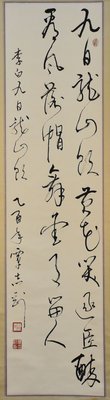 九日龍山飲黃花笑逐臣醉
看風落帽舞愛月留人
李白九日龍山飲 乙酉年覃志剛